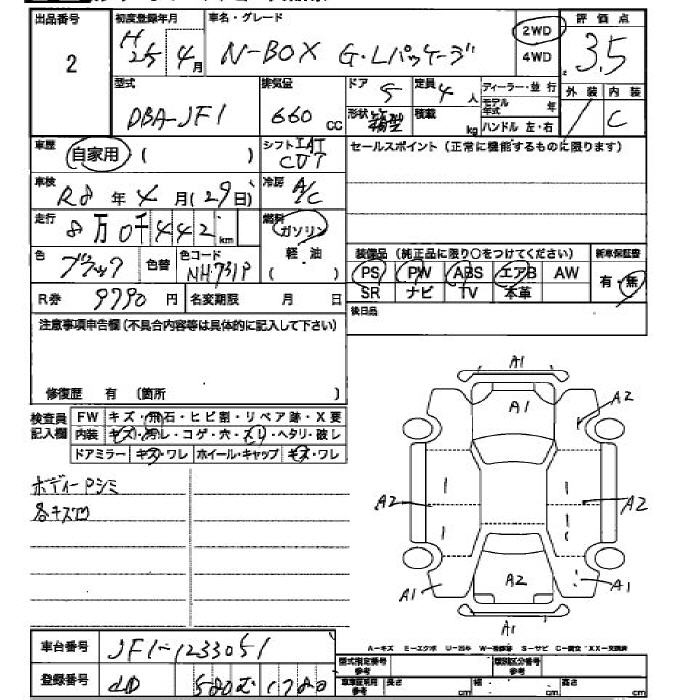 出品番号 初度登録年月 車名・グレード 2WD 評価点
2 H25年4月 N-BOX G・Lパッケージ 4WD 3.5
型式 排気量 ドア 5 定員 4人 ディーラー・並行 外装 内装
DBA-JF1 660cc 形状 箱型 積載 kg モデル年式 年 C
ハンドル 左・右
車歴 自家用 ( ) シフト IAT CVT セールスポイント (正常に機能するものに限ります)
車検 R8年4月(29日) 冷房 A/C
走行 8万0千442km 燃料 ガソリン
軽油
( )
色 ブラック 色替 色コード NH731P
装備品 (純正品に限り○をつけてください) 新車保証書
PS PW ABS エアB AW 有・無
SR ナビ TV 本革
R券 9790円 名変期限 月 日 後日品
注意事項申告欄 (不具合内容等は具体的に記入して下さい)
修復歴 有 (箇所 )
検査員記入欄 FW キズ・飛石・ヒビ割・リペア跡・X要
内装 キズ・汚レ・コゲ・穴・スレ・ヘタリ・破レ
ドアミラー キズ・ワレ ホイール・キャップ キズ・ワレ
ボディーウスミ
各キズ凹
A1
A1 A2
A2 A2
A2
A1 A1
A1
車台番号 JF1-1233051
登録番号 580 む 1780
A-キズ E-エクボ U-凹み W-補修跡 S-サビ C-腐食 XX-交換済
型式指定番号 参考 類別区分番号 参考
車庫証明用 参考 長さ cm 幅 cm 高さ cm